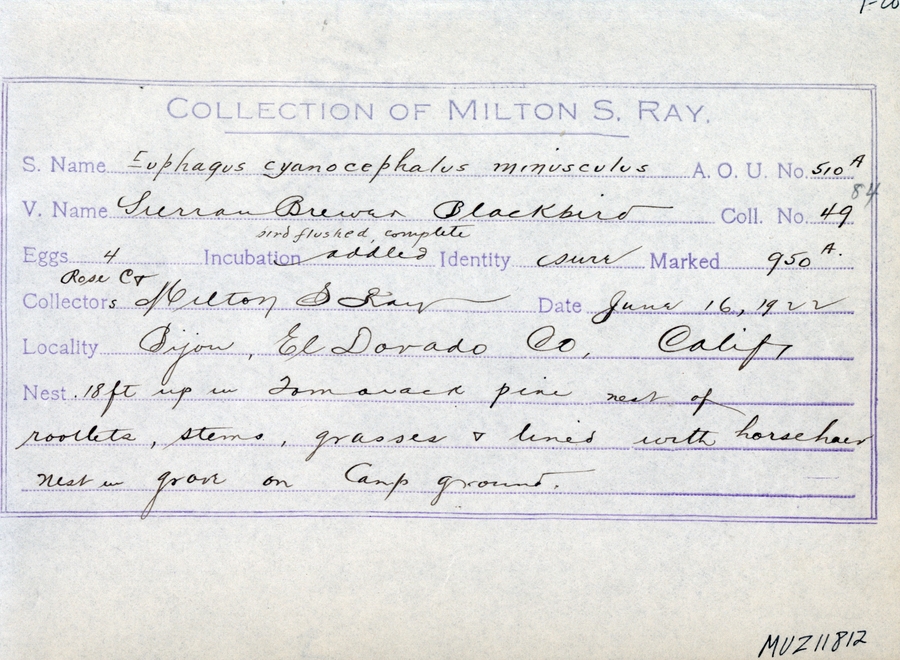 COLLECTION OF MILTON S. RAY.
S. Name Euphagus cyanocephalus minusculus A. O. U. No. 510 A
84
V. Name Sierran Brewer Blackbird Coll. No. 49
bird flushed, complete
Eggs 4 Incubation addled Identity sure Marked 950 A.
Rose C &
Collectors Milton S Ray Date June 16, 1922
Locality Bijou, El Dorado Co, Calif
Nest. 18 ft up in Tamarack pine nest of
rootlets, stems, grasses & lined with horsehair
nest in grove on Camp ground.
MVZ11812